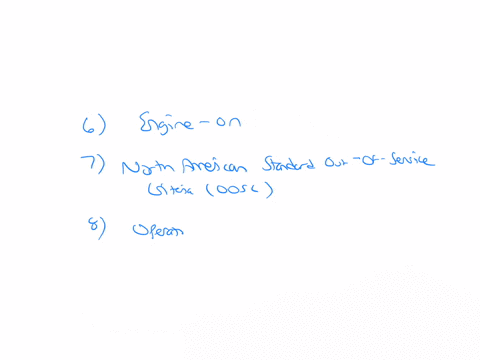 6) Engine-on
7) North American Standard Out-Of-Service
Criteria (OOSC)
8) Operan